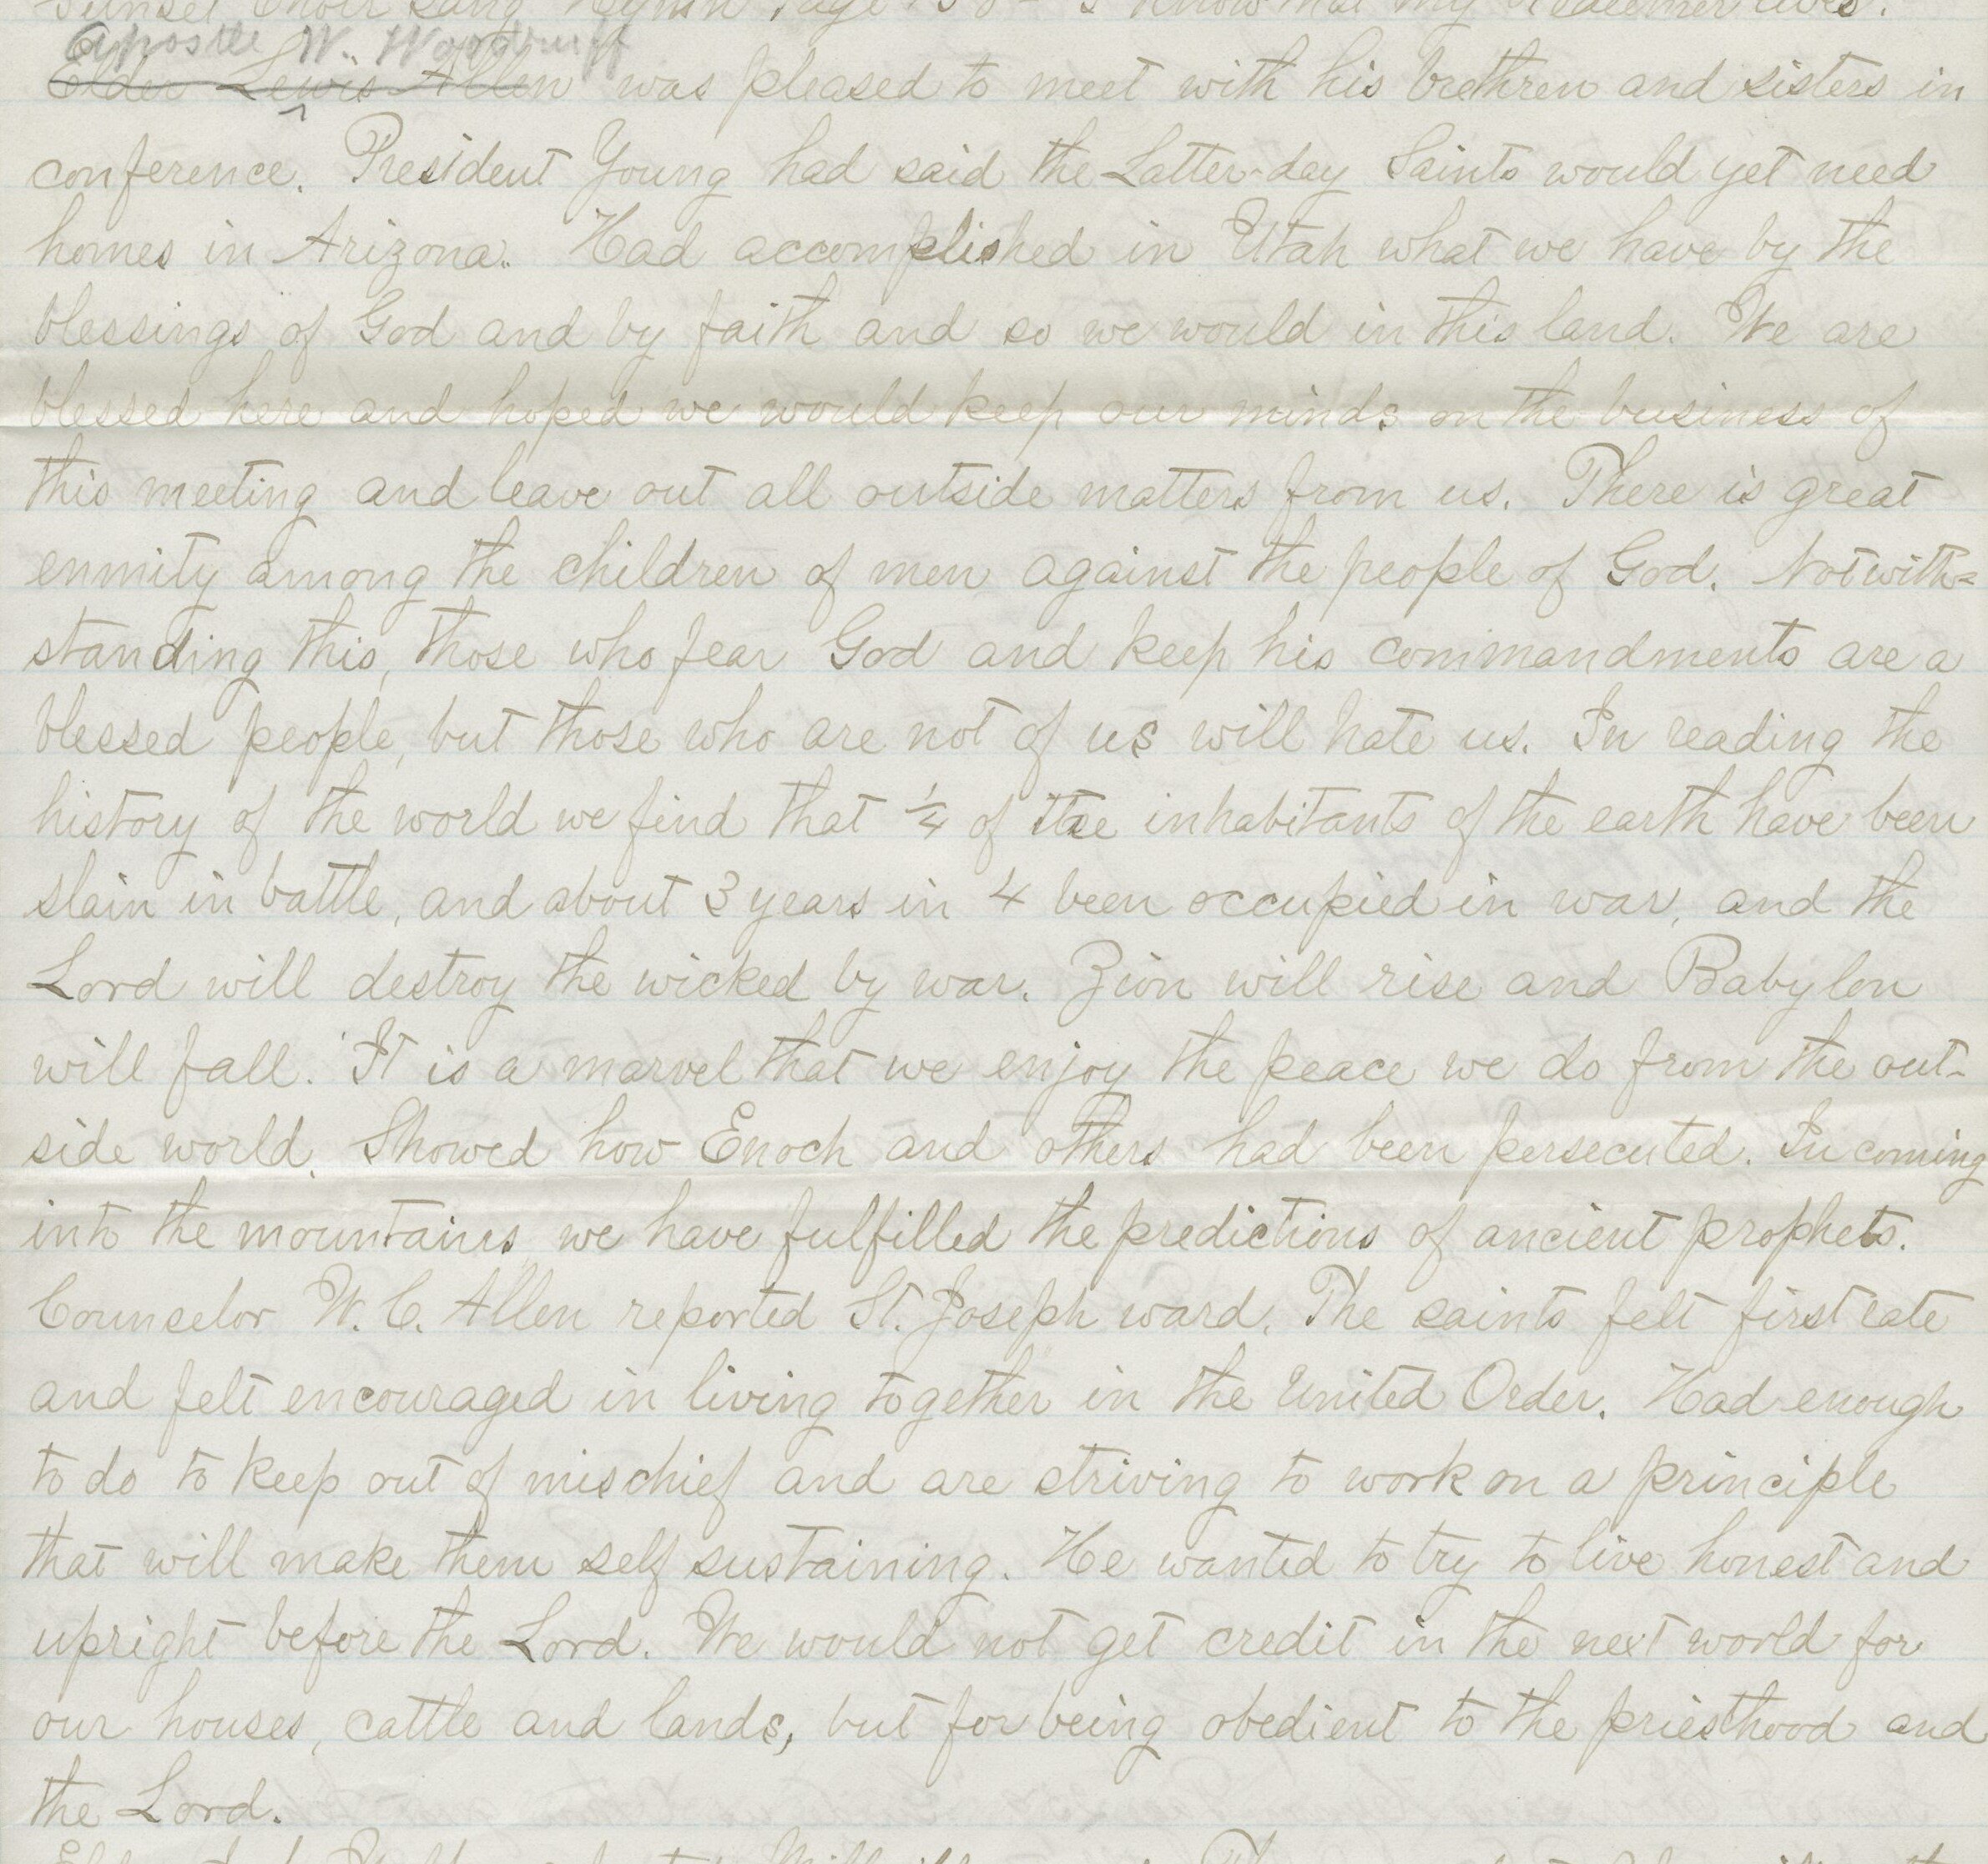 Sunset Choir sang Hymn Page "I know that my Redeemer lives.
Apostle W. Woodruff
Elder Lewis Allen was pleased to meet with his brethren and sisters in
conference. President Young had said the Latter-day Saints would yet need
homes in Arizona. Had accomplished in Utah what we have by the
blessings of God and by faith and so we would in this land. We are
blessed here and hoped we would keep our minds on the business of
this meeting and leave out all outside matters from us. There is great
enmity among the children of men against the people of God. Notwith=
standing this, those who fear God and keep his commandments are a
blessed people, but those who are not of us will hate us. In reading the
history of the world we find that ¼ of the inhabitants of the earth have been
slain in battle, and about 3 years in 4 been occupied in war, and the
Lord will destroy the wicked by war. Zion will rise and Babylon
will fall. It is a marvel that we enjoy the peace we do from the out-
side world. Showed how Enoch and others had been persecuted. In coming
into the mountains we have fulfilled the predictions of ancient prophets.
Counselor W. C. Allen reported St. Joseph ward. The saints felt first rate
and felt encouraged in living together in the United Order. Had enough
to do to keep out of mischief and are striving to work on a principle
that will make them self sustaining. He wanted to try to live honest and
upright before the Lord. We would not get credit in the next world for
our houses, cattle and lands, but for being obedient to the priesthood and
the Lord.